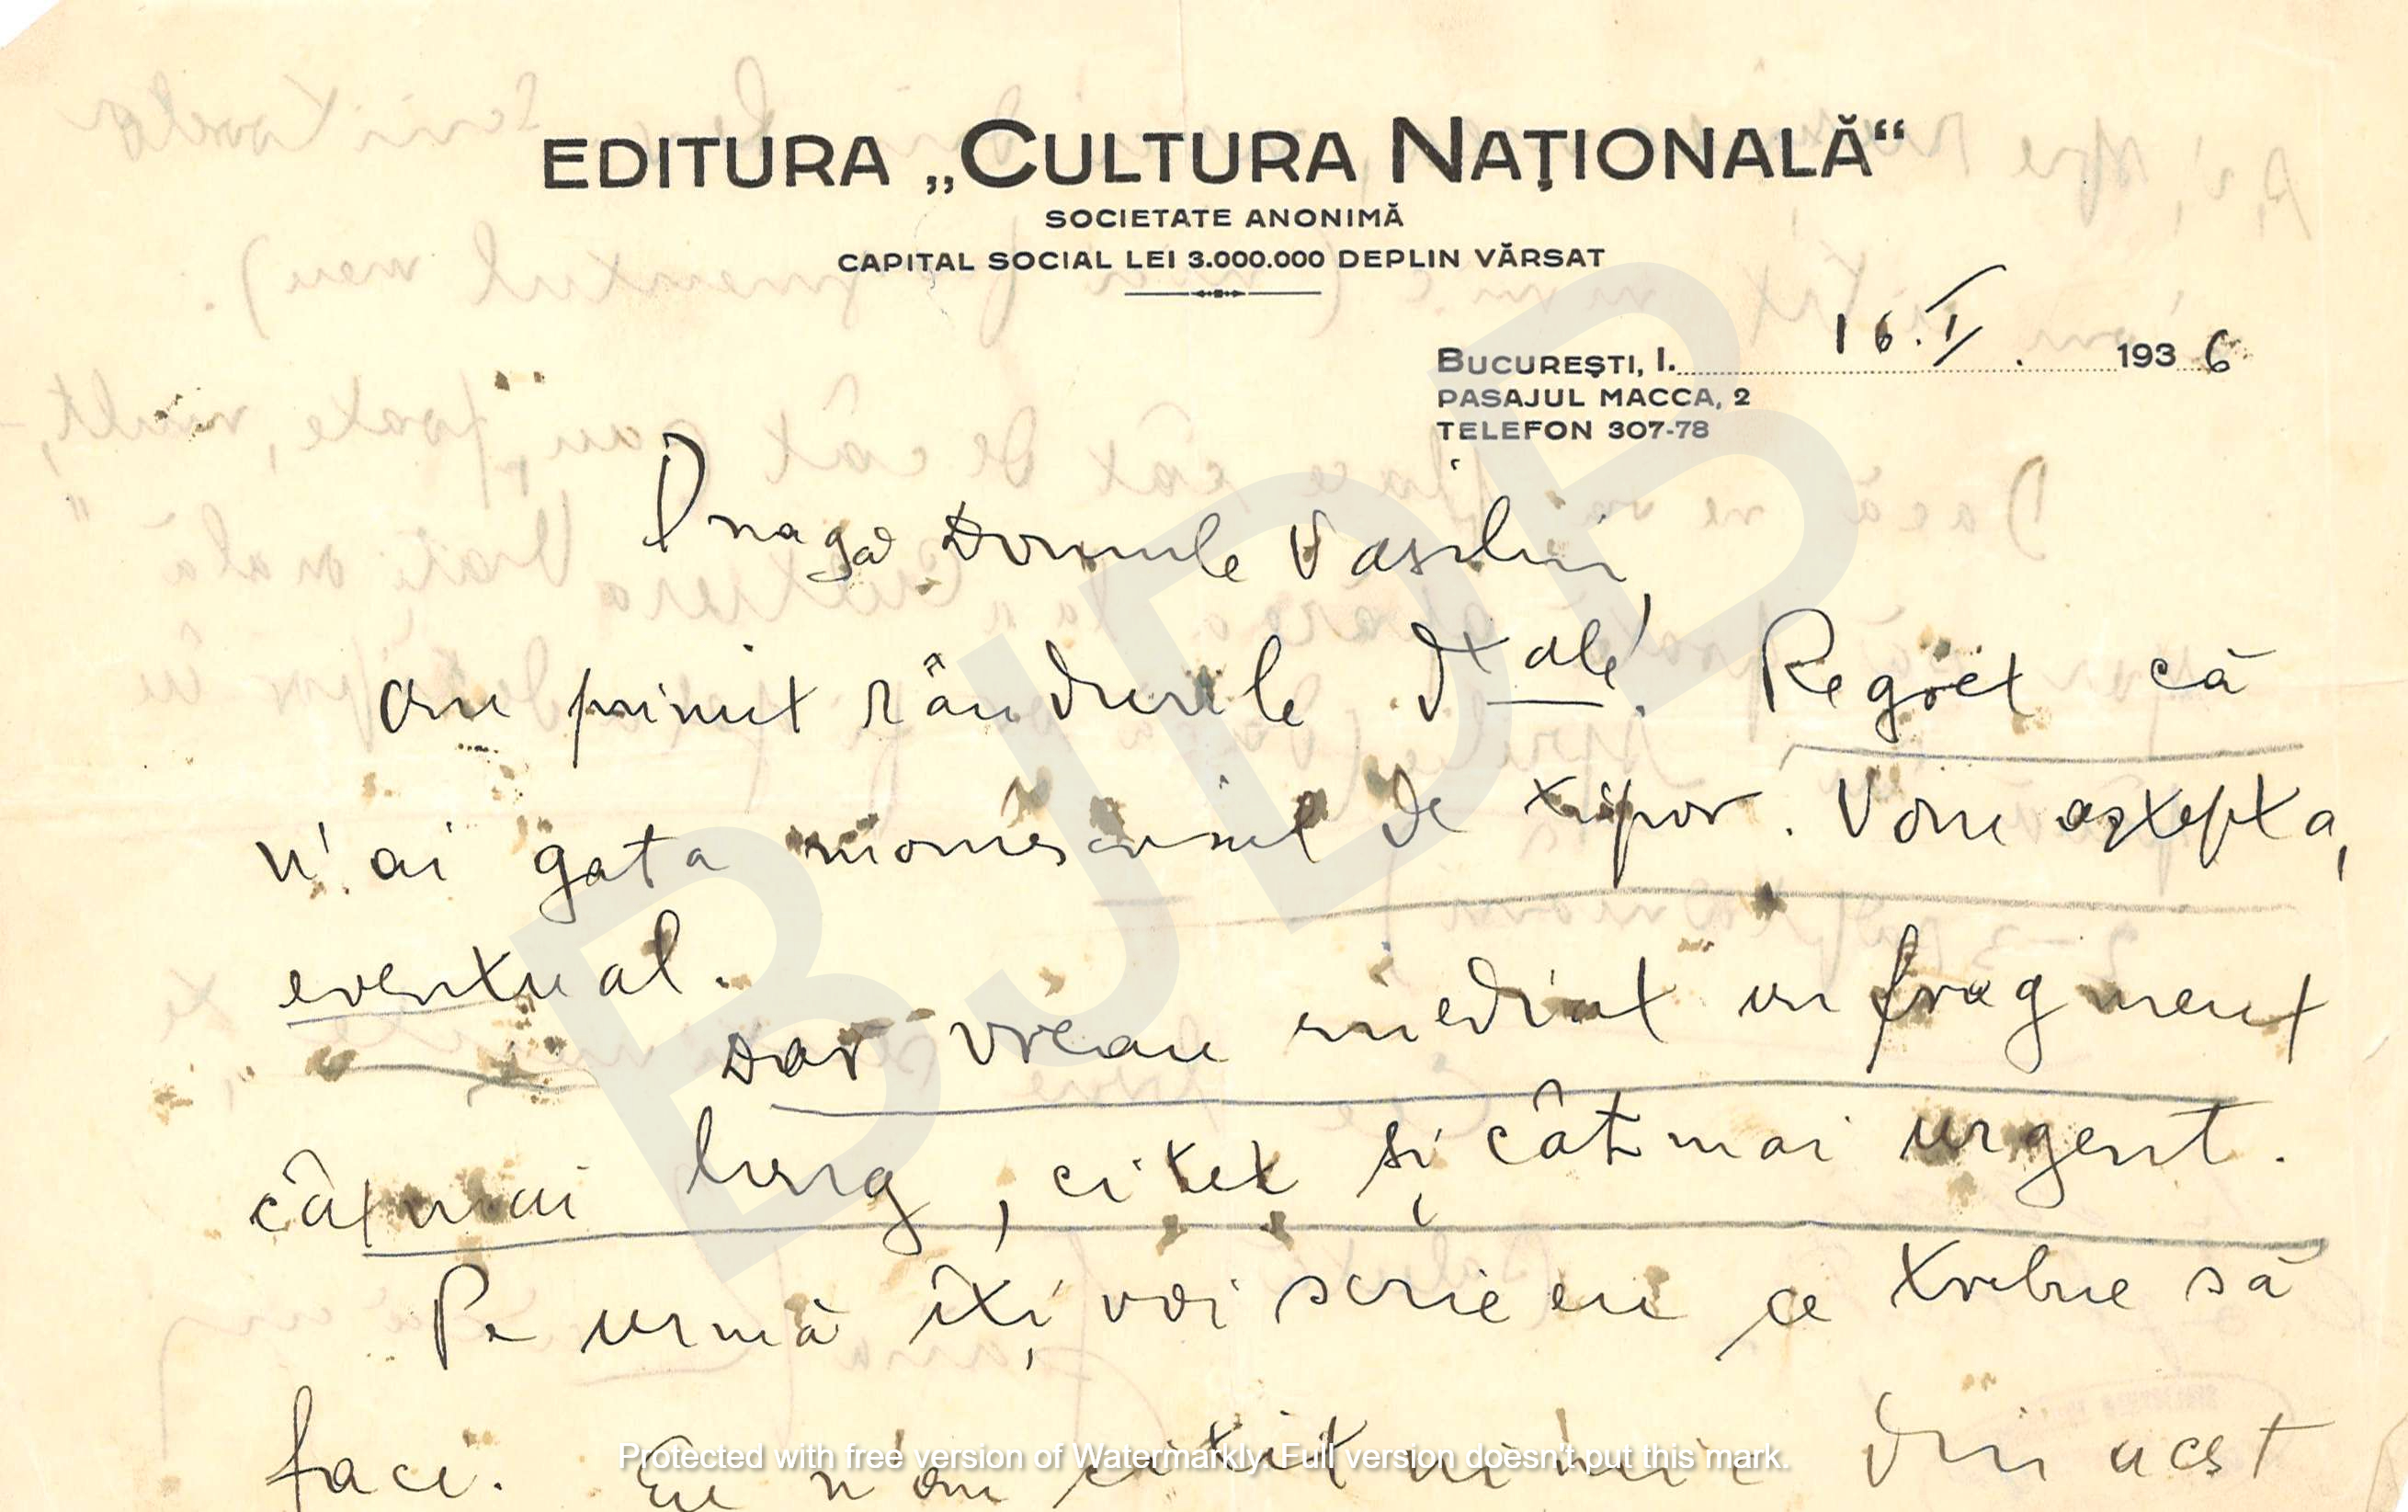 EDITURA „CULTURA NAŢIONALĂ“
SOCIETATE ANONIMĂ
CAPITAL SOCIAL LEI 3.000.000 DEPLIN VĂRSAT
16.I. 1936
BUCUREŞTI, I.
PASAJUL MACCA, 2
TELEFON 307-78
Dragă Domnule Vasiliu,
am primit rândurile dtale. Regret că
n'ai gata manuscrisul de tipar. Vom aştepta,
eventual.
Dar vreau imediat un fragment
cât mai lung, citeţ şi cât mai urgent.
Pe urmă îţi voi scrie eu ce trebue să
faci. Eu n'am citit nimic din acest
Protected with free version of Watermarkly. Full version doesn't put this mark.
BJDB